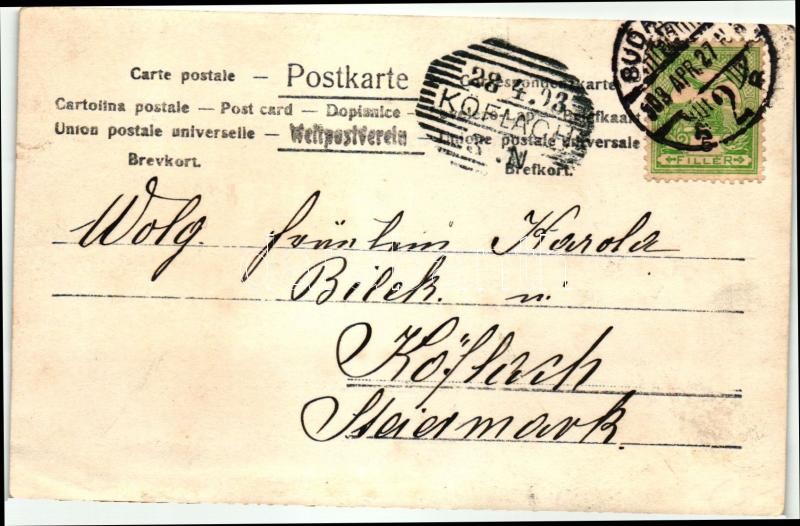 Carte postale — Postkarte
Cartolina postale — Post card — Dopisnice
Union postale universelle — Weltpostverein — Union postale universale
Brevkort. Brefkort.
28.4.03
KÖFLACH
BUD
903 APR 27
FILLÉR
Wolg. Fräulein Karola
Bilek. in
Köflach
Steiermark